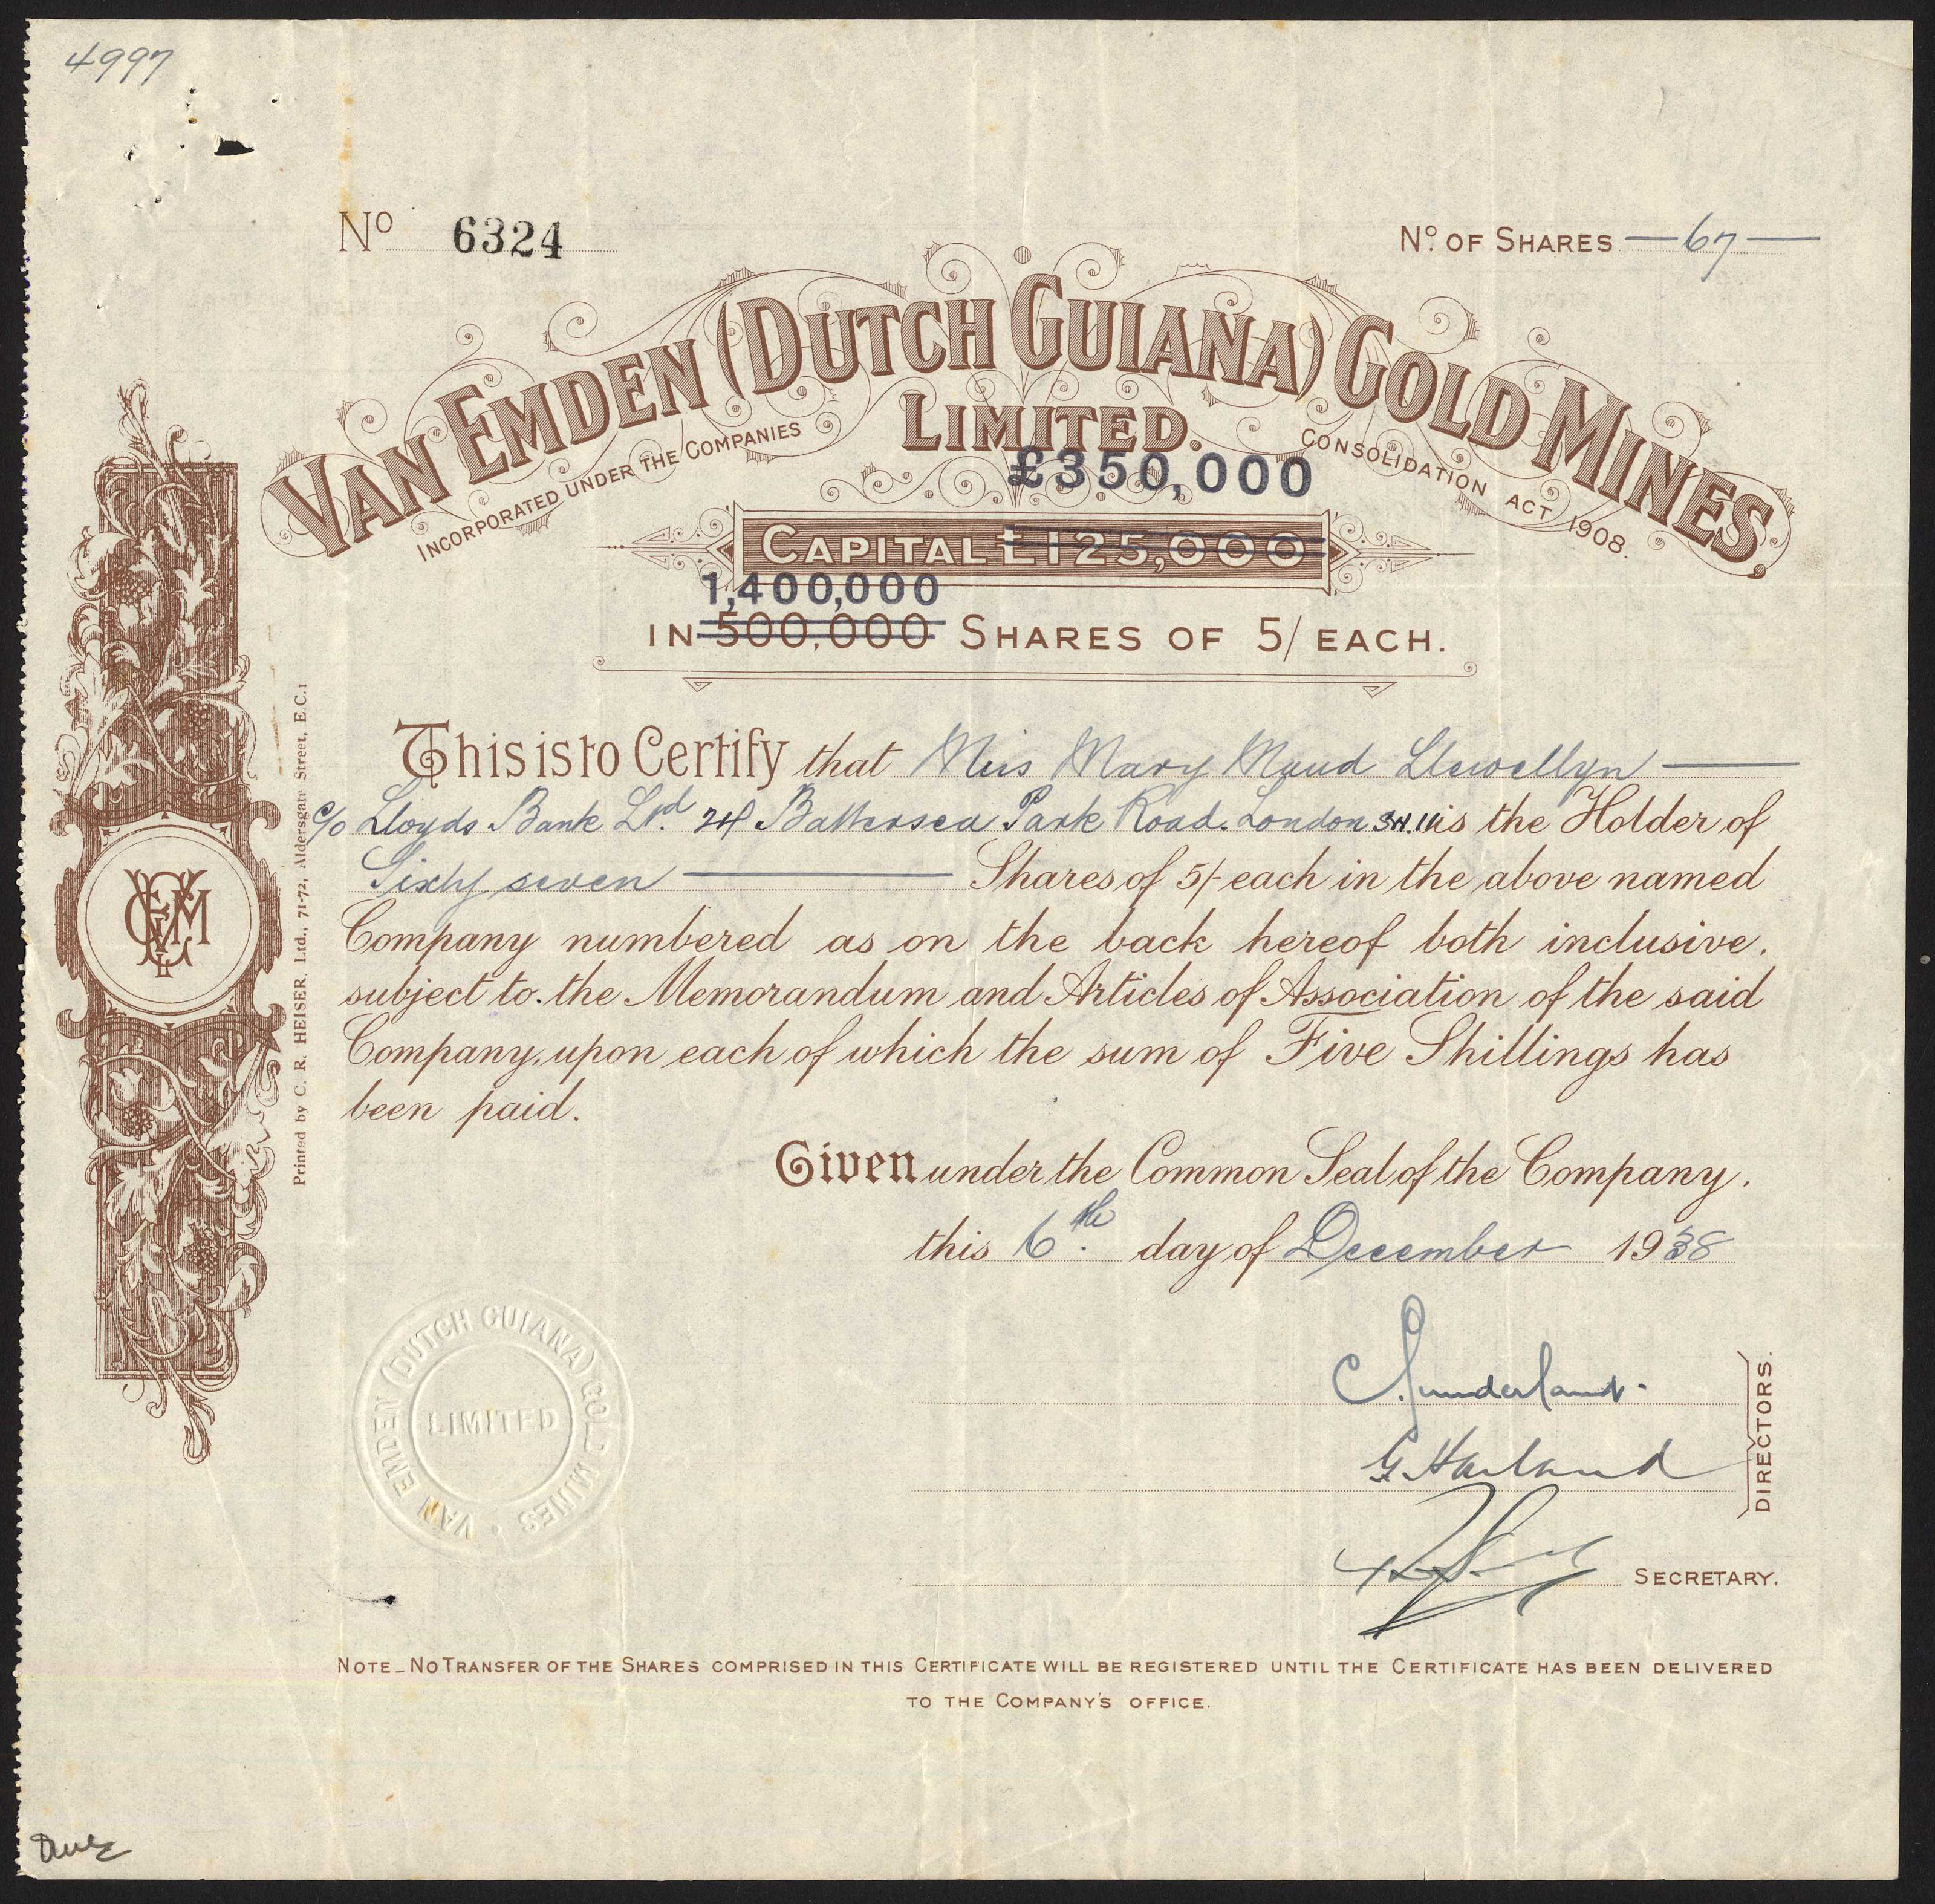 4997
Nº 6324
Nº. OF SHARES — 67 —
VAN EMDEN (DUTCH GUIANA) GOLD MINES.
LIMITED.
INCORPORATED UNDER THE COMPANIES CONSOLIDATION ACT 1908.
£350,000
CAPITAL £125,000
1,400,000
IN 500,000 SHARES OF 5/ EACH.
This is to Certify that Miss Mary Maud Llewellyn
c/o Lloyds Bank Ltd. Battersea Park Road. London S.W.11 is the Holder of
Sixty seven Shares of 5/- each in the above named
Company numbered as on the back hereof both inclusive,
subject to the Memorandum and Articles of Association of the said
Company, upon each of which the sum of Five Shillings has
been paid.
Given under the Common Seal of the Company,
this 6th. day of December 1938
C. Sunderland.
G. Harland
DIRECTORS.
SECRETARY.
VAN EMDEN (DUTCH GUIANA) GOLD MINES.
LIMITED
NOTE_NO TRANSFER OF THE SHARES COMPRISED IN THIS CERTIFICATE WILL BE REGISTERED UNTIL THE CERTIFICATE HAS BEEN DELIVERED
TO THE COMPANY'S OFFICE.
Printed by C. R. HEISER, Ltd., 71-72, Aldersgate Street, E.C.1